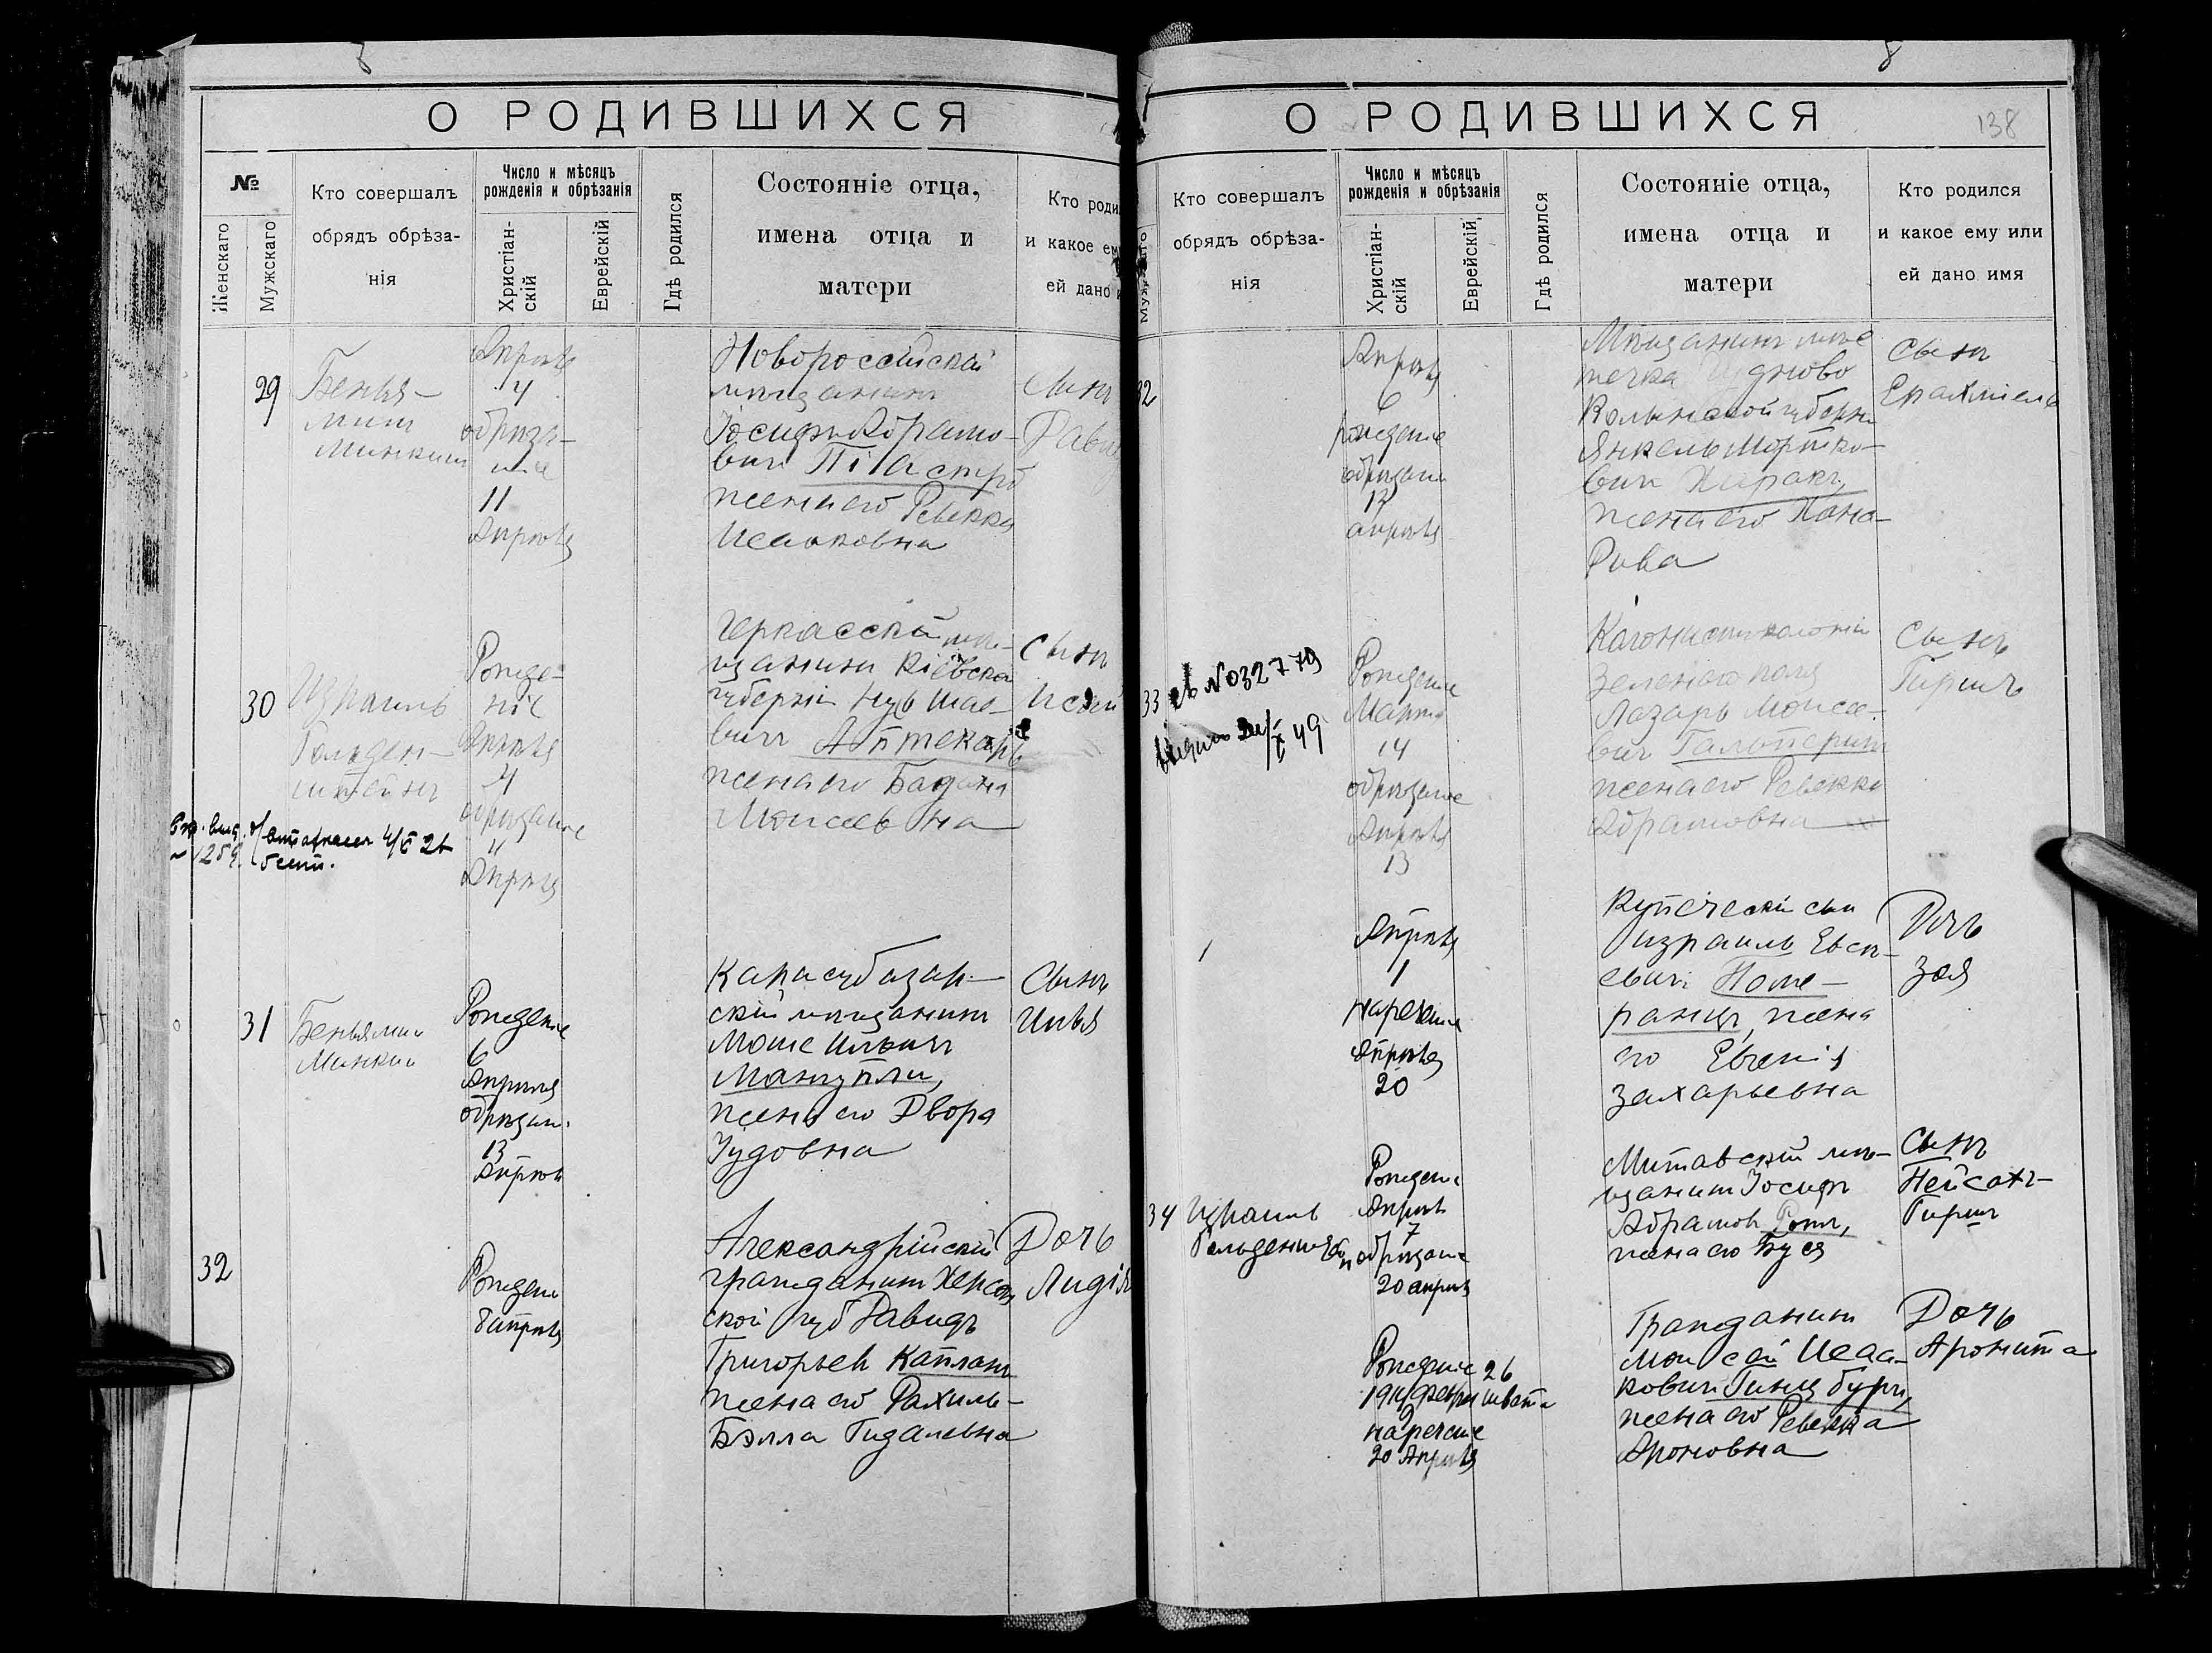 О РОДИВШИХСЯ
№
Женскаго
Мужскаго
Кто совершалъ
обрядъ обрѣза-
нія
Число и мѣсяцъ
рожденія и обрѣзанія
Христіан-
скій
Еврейскій
Гдѣ родился
Состояніе отца,
имена отца и
матери
Кто роди
и какое ем
ей дано и
29
Бенья-
минъ
Минкинъ
Апрѣля
4
обрѣза-
ніе
11
Апрѣля
Новороссійскій
мѣщанинъ
Іосифъ Абрамо-
вичъ Піастро
жена его Ревекка
Исааковна
Сынъ
Давид
30
Израиль
Гольден-
штейнъ
Рожде-
ніе
Апрѣля
4
обрѣзаніе
11
Апрѣля
Черкасскій мѣ-
щанинъ Кіевской
губерніи Нухъ Шае-
вичъ Аптекарь
жена его Бадана
Моисеевна
Сынъ
Исай
31
Беньямин
Минкин
Рожденіе
6
Апрѣля
обрѣзан.
13
Апрѣля
Карасубазар-
скій мѣщанинъ
Моше Ильичъ
Мангупли,
жена его Двора
Іудовна
Сынъ
Илья
32
Рожден
8 апрѣля
Александрійскій
гражданинъ Херсон
ской губ Давидъ
Григорьев Капланъ
жена его Рахиль-
Бэлла Гидалевна
Дочь
Лидія
О РОДИВШИХСЯ
138
Мужскаго
Кто совершалъ
обрядъ обрѣза-
нія
Число и мѣсяцъ
рожденія и обрѣзанія
Христіан-
скій
Еврейскій
Гдѣ родился
Состояніе отца,
имена отца и
матери
Кто родился
и какое ему или
ей дано имя
32
Апрѣля
6
рожденіе
обрѣзаніе
13
апрѣля
Мѣщанинъ мѣс
течка Чудново
Волынской губерн
Янкель Мортко-
вич Харакъ,
жена его Хана-
Рива
Сынъ
Ерахміель
33
св №032779
Рожденіе
Марта
14
обрѣзаніе
Апрѣля
13
Колонистъ колоніи
Зеленого поля
Лазарь Моисе-
вич Гальперинъ
жена его Ревекка
Абрамовна
Сынъ
Гиршъ
1
Апрѣля
1
нареченіе
Апрѣля
20
Купеческій сын
Израиль Евсѣ-
евичъ Поме-
ранцъ, жена
его Евгенія
Захарьевна
Дочь
Зоя
34
Израиль
Гольденштейн
Рожденіе
Апрѣля
7
обрѣзаніе
20 апрѣля
Митавскій мѣ-
щанинъ Іосифъ
Абрамов Ротъ,
жена его Буся
Сынъ
Пейсахъ-
Гиршъ
Рожденіе 26
9
нареченіе
20 Апрѣля
Гражданинъ
Моисей Исаа-
ковичъ Гинцбургъ,
жена его Ревекка
Ароновна
Дочь
Аронита